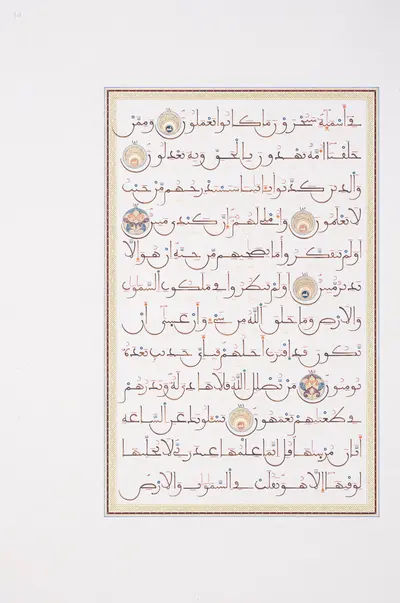 في أسمئه سيجزون ما كانوا يعملون وممن
خلقنا أمة يهدون بالحق وبه يعدلون
والذين كذبوا بآيتنا سنستدرجهم من حيث
لا يعلمون وأملي لهم إن كيدي متين
أولم يتفكروا ما بصاحبهم من جنة إن هو إلا
نذير مبين أولم ينظروا في ملكوت السموت
والأرض وما خلق الله من شيء وأن عسى أن
يكون قد اقترب أجلهم فبأي حديث بعده
يؤمنون من يضلل الله فلا هادي له ويذرهم
في طغينهم يعمهون يسئلونك عن الساعة
أيان مرسيها قل إنما علمها عند ربي لا يجليها
لوقتها إلا هو ثقلت في السموت والأرض